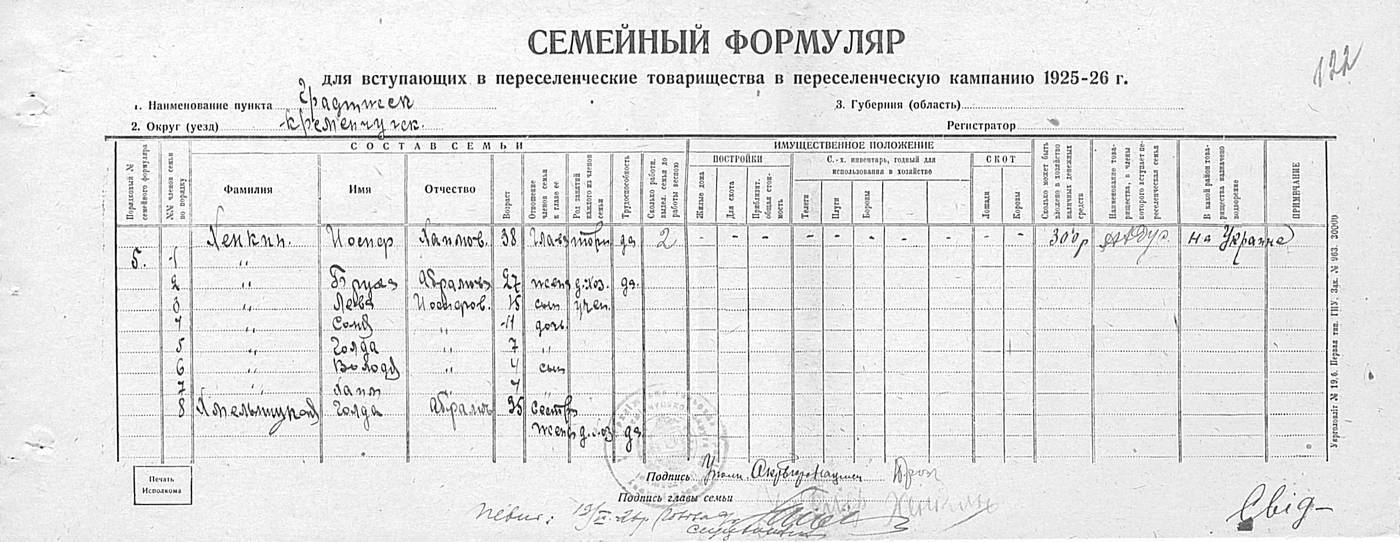 122
СЕМЕЙНЫЙ ФОРМУЛЯР
для вступающих в переселенческие товарищества в переселенческую кампанию 1925-26 г.
1. Наименование пункта Градижск
3. Губерния (область)
2. Округ (уезд) Кременчугск.
Регистратор
СОСТАВ СЕМЬИ
ИМУЩЕСТВЕННОЕ ПОЛОЖЕНИЕ
Порядковый № семейного формуляра
№№ членов семьи по порядку
Фамилия
Имя
Отчество
Возраст
Отношение членов семьи к главе ее
Род занятий каждого из членов семьи
Трудоспособность
Сколько работн. выдел. семья до работы весною
ПОСТРОЙКИ
Жилые дома
Для скота
Приблизит. общая стоимость
С.-х. инвентарь, годный для использования в хозяйстве
Телеги
Плуги
Бороны
СКОТ
Лошади
Коровы
Сколько может быть вложено в хозяйство наличных денежных средств
Наименование товарищества, в члены которого вступает переселенческая семья
В какой район товарищества назначено водворение
ПРИМЕЧАНИЕ
Хенкин. Иосиф Хаимов. 38 глава торг. да 2 - - - - - - - - - - - 300р на Украине
5. 1 "
2 " Бруха Абрамовн 27 жена д.хоз. да.
3 " Лева Иосифов. 15 сын учен.
4 " Соня " 11 дочь
5 " Голда " 7 "
6 " Володя " 4 сын
7 " Хаим "
8 Хмельницкая Голда Абрамов 35 сестра
жены д.хоз да
Печать Исполкома
Подпись
Подпись главы семьи
Свід-
Укрголовліт № 19,6. Первая тип. ГПУ. Зак. № 963. 30000